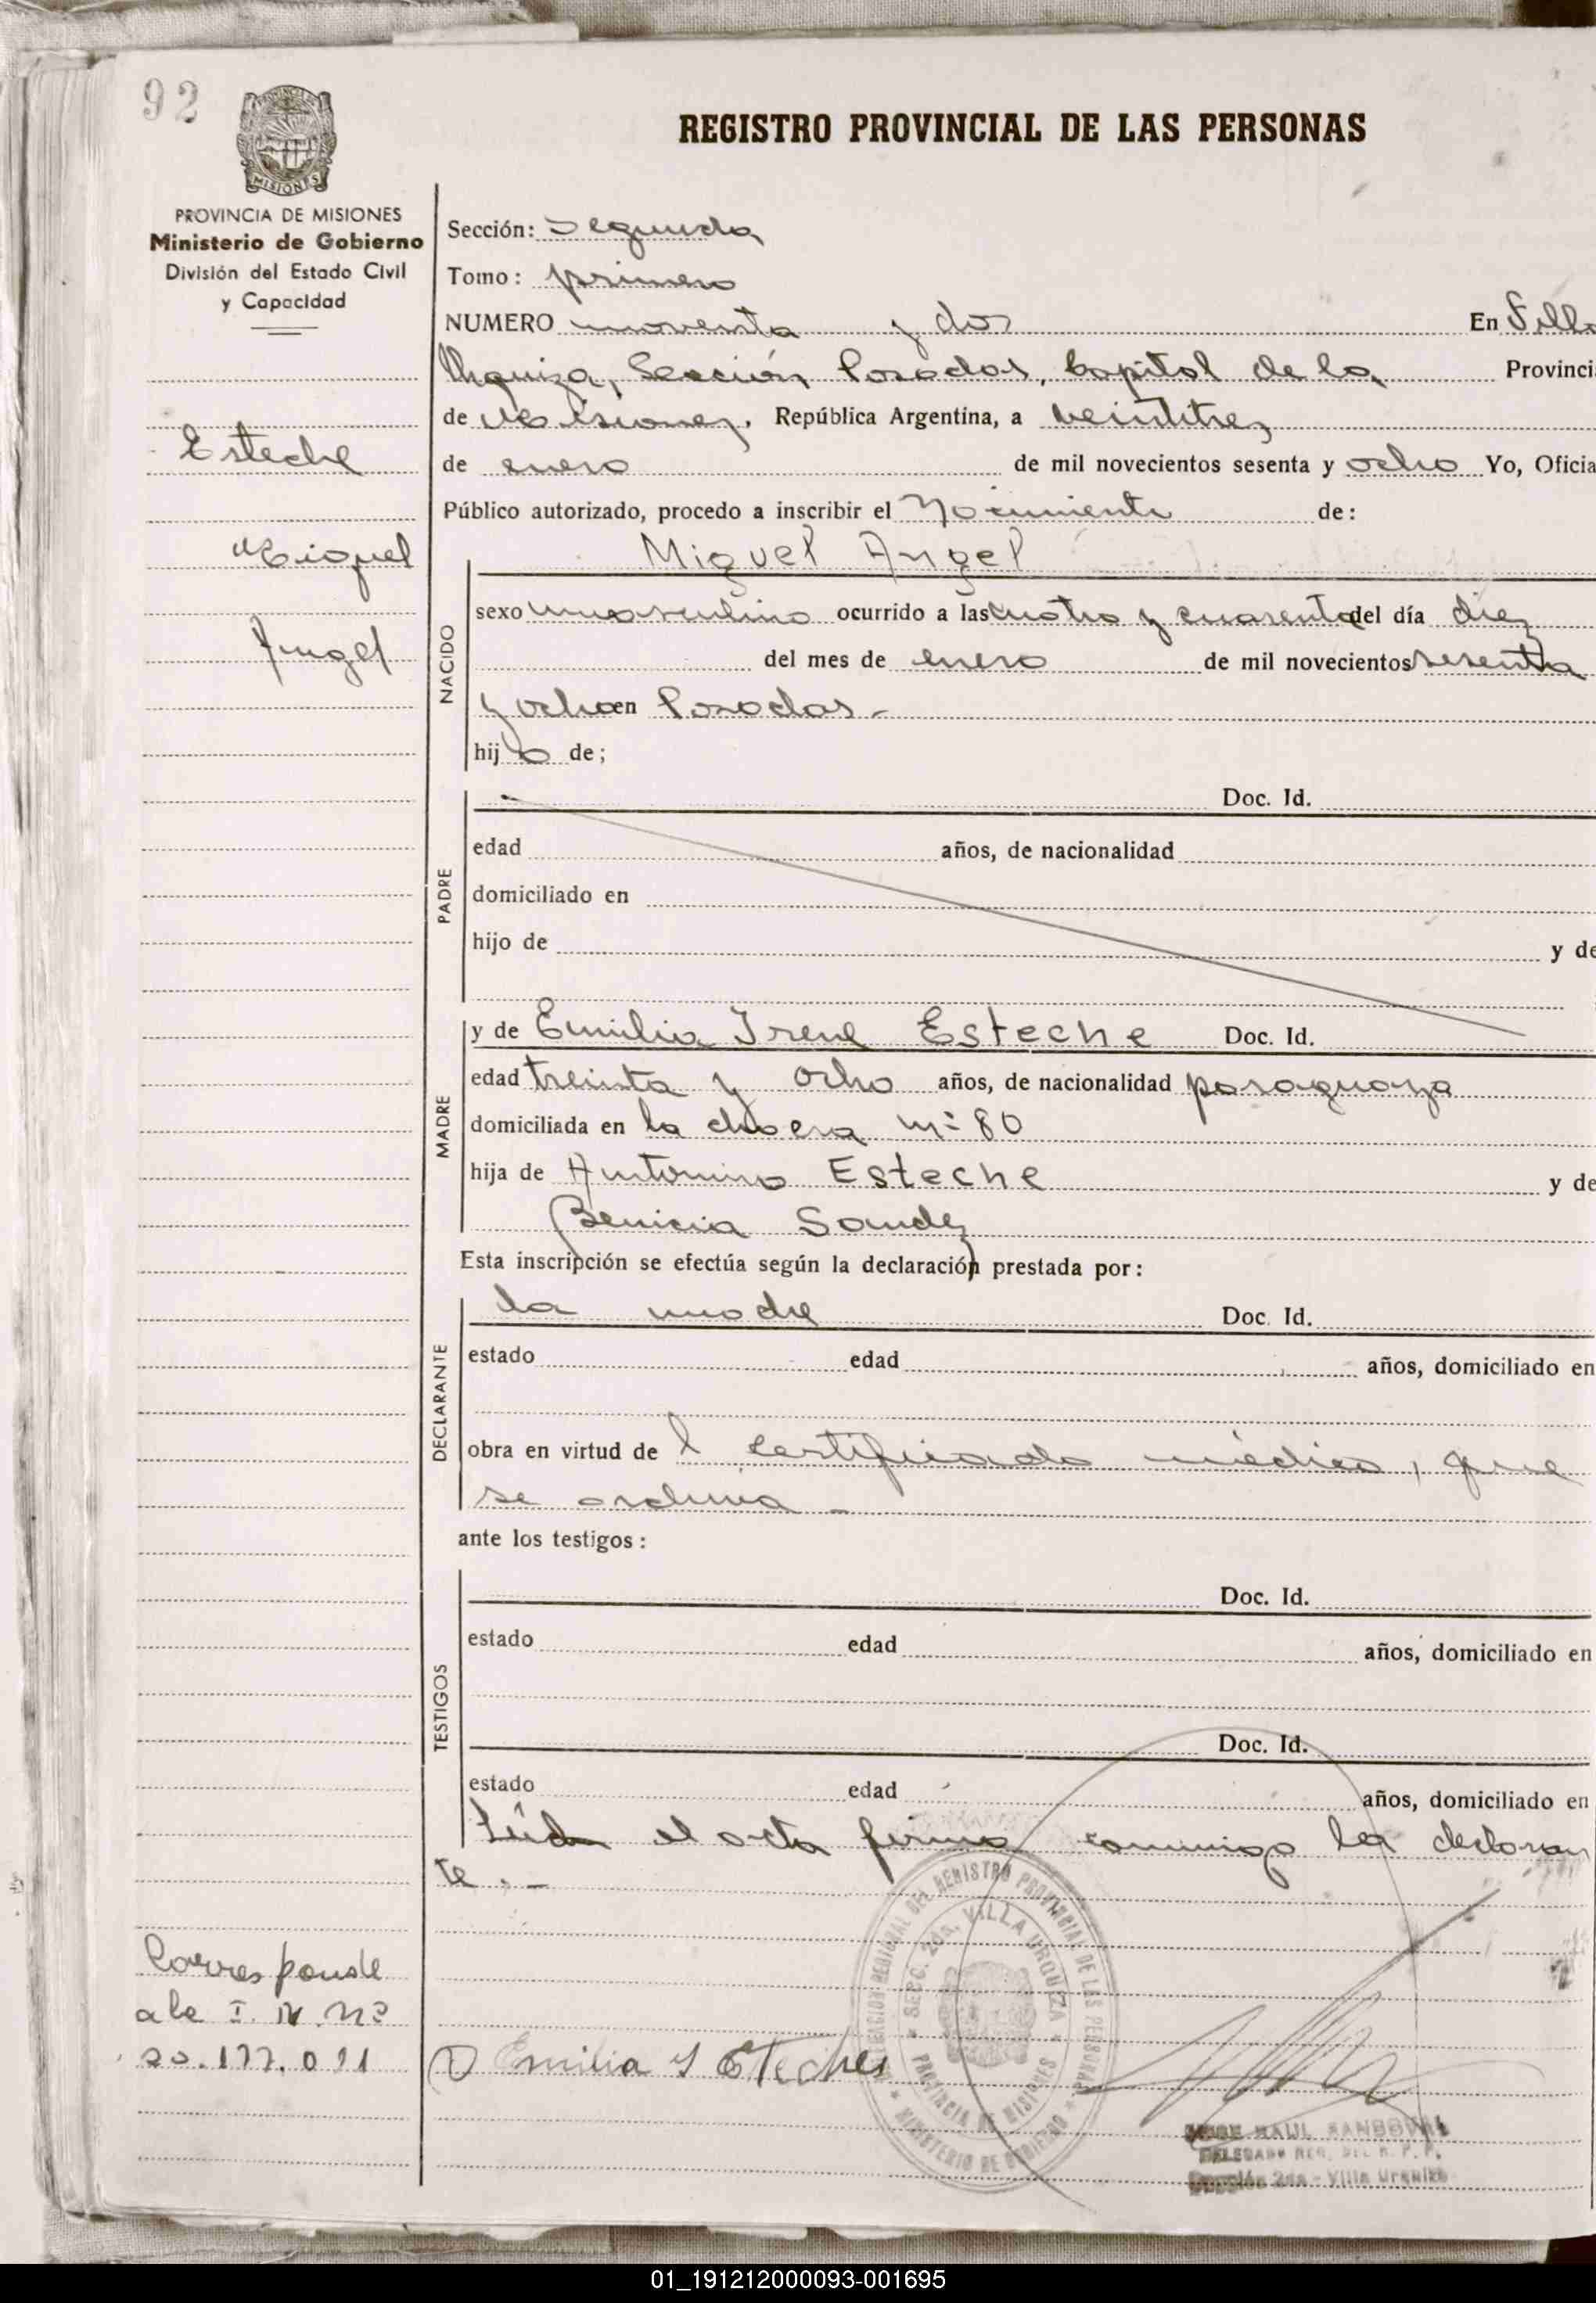 92
MISIONES
REGISTRO PROVINCIAL DE LAS PERSONAS
PROVINCIA DE MISIONES
Ministerio de Gobierno
División del Estado Civil
y Capacidad
Esteche
Miguel
Angel
Sección: Segunda
Tomo: primero
NUMERO noventa y dos En Villa
Urquiza, Sección Posadas, Capital de la Provinci
de Misiones. República Argentina, a veintitrez
de enero de mil novecientos sesenta y ocho Yo, Oficia
Público autorizado, procedo a inscribir el Nacimiento de:
NACIDO
Miguel Angel
sexo masculino ocurrido a las cuatro y cuarenta del día diez
del mes de enero de mil novecientos sesenta
y ocho en Posadas.-
hijo de;
PADRE
Doc. Id.
edad años, de nacionalidad
domiciliado en
hijo de y de
MADRE
y de Emilia Irene Esteche Doc. Id.
edad treinta y ocho años, de nacionalidad paraguaya
domiciliada en la chacra nº 80
hija de Antonino Esteche y de
Benicia Sandez
Esta inscripción se efectúa según la declaración prestada por:
DECLARANTE
la madre Doc. Id.
estado edad años, domiciliado en
obra en virtud de l certificado médico, que
se archiva -
ante los testigos:
TESTIGOS
Doc. Id.
estado edad años, domiciliado en
Doc. Id.
estado edad años, domiciliado en
Leída el acta firma conmigo la declaran
te.-
Corresponde
a la I. N. Nº
20.177.011
Emilia I Esteche
DELEGACION REGIONAL DEL REGISTRO PROVINCIAL DE LAS PERSONAS
SECC. 2da. VILLA URQUIZA
PROVINCIA DE MISIONES
MINISTERIO DE GOBIERNO
JOSE RAUL SANDOVAL
DELEGADO REG. DEL R. P. P.
Sección 2da - Villa Urquiza
01_191212000093-001695